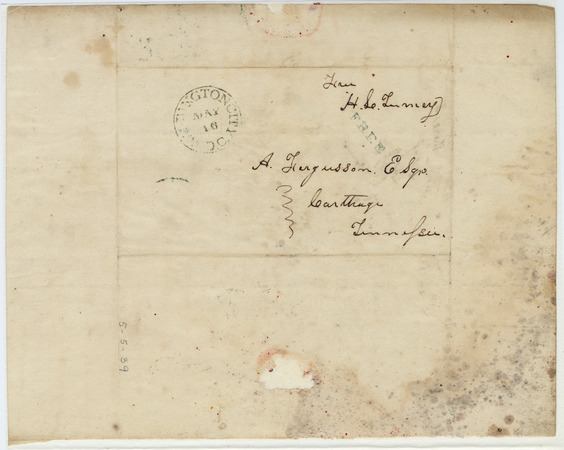 Free
H. L. Turney
WASHINGTON CITY D.C.
MAY
16
FREE
A. Fergusson. Esqr.
Carthage
Tennessee.
5-5-39